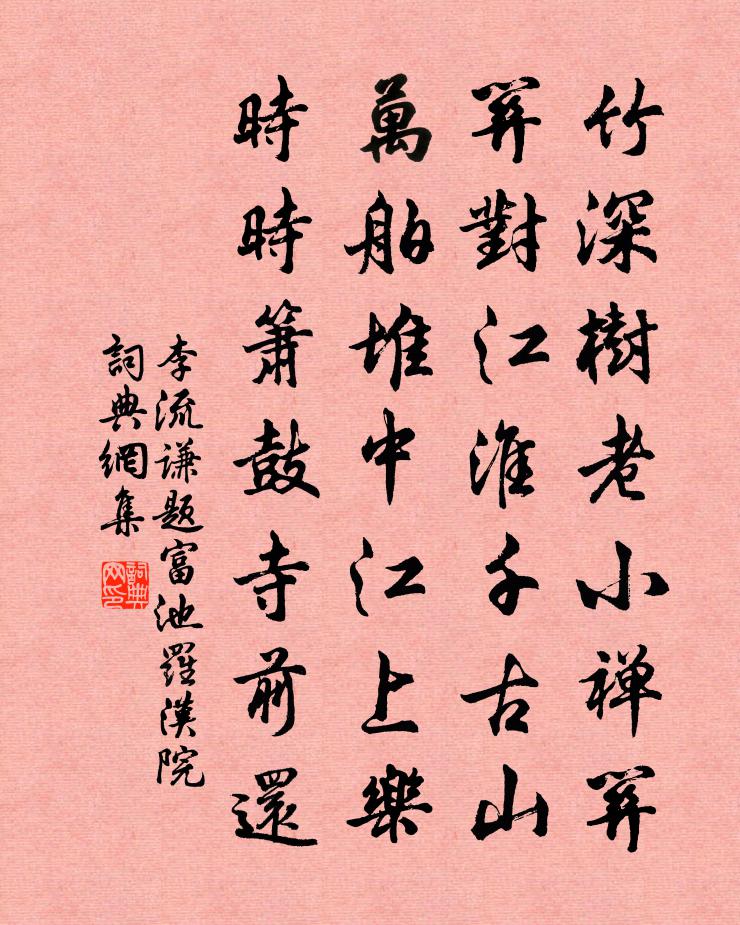 竹深樹老小禅關
關對江淮千古山
萬舶堆中江上樂
時時簫鼓寺前還
李流謙題富池羅漢院
詞典網集
詞典网印